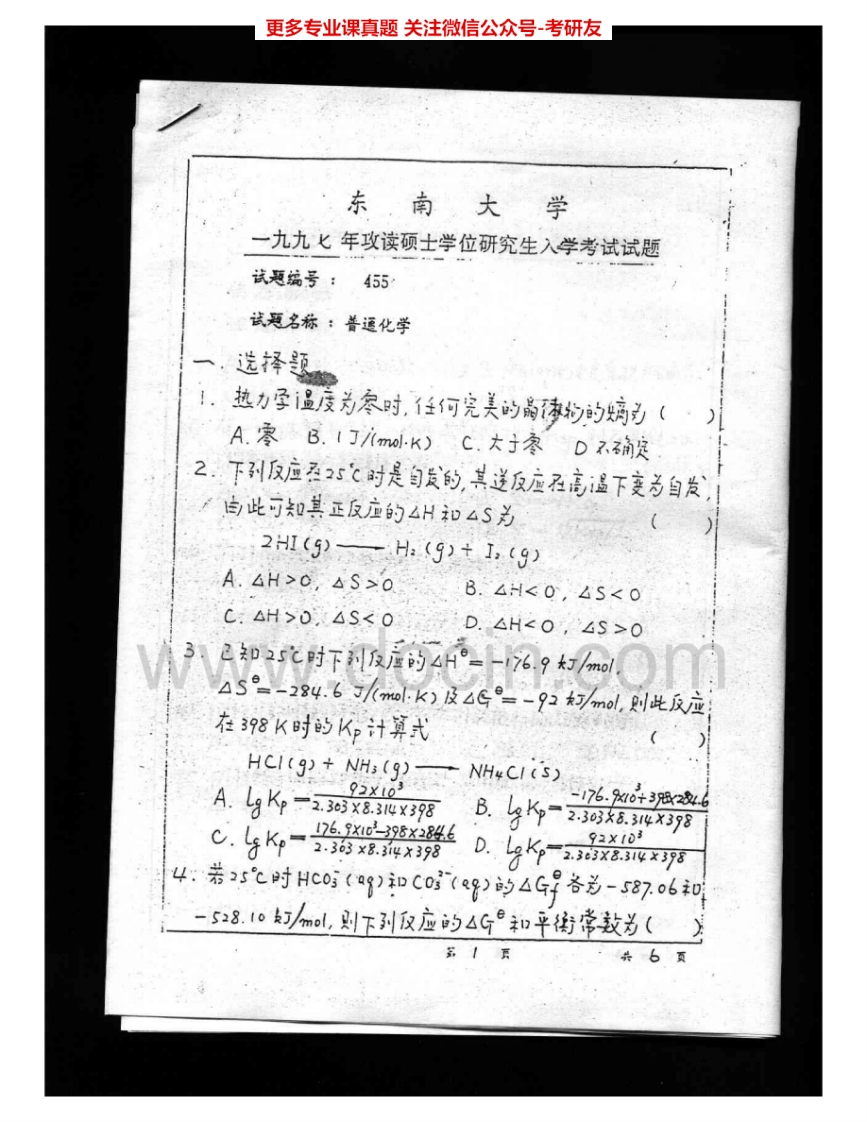 更多专业课真题 关注微信公众号-考研友
东 南 大 学
一九九七年攻读硕士学位研究生入学考试试题
试题编号： 455
试题名称：普通化学
一. 选择题
1. 热力学温度为零时,任何完美的晶体物的熵为 ( )
A. 零 B. 1 J/(mol·K) C. 大于零 D 不确定
2. 下列反应在25℃时是自发的,其逆反应在高温下变为自发,
由此可知其正反应的△H和△S为 ( )
2HI(g) → H₂(g) + I₂(g)
A. △H>0, △S>0 B. △H<0, △S<0
C. △H>0, △S<0 D. △H<0, △S>0
www.docin.com
3 已知25℃时下列反应的△H⊖=-176.9 kJ/mol,
△S⊖=-284.6 J/(mol·K)及△G⊖=-92 kJ/mol,则此反应
在398K时的Kp计算式 ( )
HCl(g) + NH₃(g) → NH₄Cl(s)
A. lgKp=92×10³/2.303×8.314×398 B. lgKp=-176.9×10³+398×284.6/2.303×8.314×398
C. lgKp=176.9×10³-398×284.6/2.303×8.314×398 D. lgKp=92×10³/2.303×8.314×398
4. 若25℃时HCO₃⁻(aq)和CO₃²⁻(aq)的△Gf⊖各为-587.06和
-528.10 kJ/mol,则下列反应的△G⊖和平衡常数为 ( )
第 1 页 共 6 页